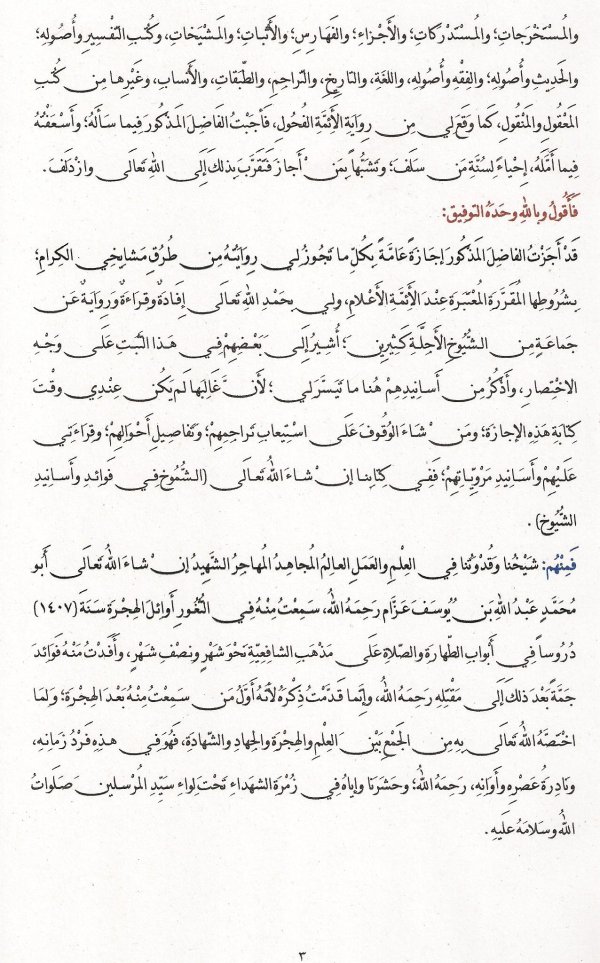 والْمُسْتَخْرَجاتِ؛ والْمُسْتَدْرَكاتِ؛ والأَجْزاءِ؛ والفَهارِسِ؛ والأَثْباتِ؛ والمَشْيَخاتِ، وكُتُبِ التَّفْسِيرِ وأُصُولِهِ؛
والحَدِيثِ وأُصُولِهِ؛ والفِقْهِ وأُصُولِهِ، واللغَةِ، والتارِيخِ، والتّراجِمِ، والطّبَقاتِ، والأَنْسابِ، وغَيْرِها مِن كُتُبِ
المَعْقُولِ والمَنْقُولِ، كَما وَقَعَ لِي مِن رِوايَةِ الأَئِمَّةِ الفُحُولِ، فَأَجَبْتُ الفاضِلَ المَذْكُورَ فِيما سَأَلَهُ؛ وأَسْعَفْتُهُ
فِيما أَمَّلَهُ، إِحْياءً لِسُنَّةِ مَن سَلَفَ؛ وتَشَبُّهاً بِمَنْ أَجازَ فَتَقَرَّبَ بِذلكَ إِلَى اللهِ تَعالَى وازْدَلَفَ.
فَأَقُولُ وبِاللهِ وحْدَهُ التّوفِيق:
قَدْ أَجَزْتُ الفاضِلَ المَذْكُورَ إجازَةً عامَّةً بِكُلِّ ما تَجُوزُ لِي رِوايَتُهُ مِن طُرُقِ مَشايِخِي الكِرامِ؛
بِشُرُوطِها المُقَرَّرَةِ المُعْتَبَرَةِ عِنْدَ الأَئِمَّةِ الأَعْلامِ، ولِي بِحَمْدِ اللهِ تَعالَى إِفادَةٌ وقِراءَةٌ ورِوايَةٌ عَن
جَماعَةٍ مِن الشُّيُوخِ الأَجِلَّةِ كَثِيرِينَ؛ أُشِيرُ إِلَى بَعْضِهِمْ فِي هَذا الثَّبَتِ عَلَى وَجْهِ
الاخْتِصارِ، وأَذْكُرُ مِن أَسانِيدِهِمْ هُنا ما تَيَسَّرَ لِي؛ لأَنَّ غالِبَها لَم يَكُن عِنْدِي وقْتَ
كِتابَةِ هَذِهِ الإِجازَةِ؛ ومَنْ شاءَ الوُقُوفَ عَلَى اسْتِيعابِ تَراجِمِهِمْ؛ وتَفاصِيلِ أَحْوالِهِمْ؛ وقِراءَتِي
عَلَيْهِمْ وأَسانِيدِ مَرْوِيّاتِهِمْ؛ فَفِي كِتابِنا إِنْ شاءَ اللهُ تَعالَى (الشُّمُوخِ فِي فَوائِدِ وأَسانِيدِ
الشُّيُوخِ).
فَمِنْهُم: شَيْخُنا وقُدْوَتُنا فِي العِلْمِ والعَمَلِ العالِمُ المُجاهِدُ المُهاجِرُ الشَّهِيدُ إِنْ شاءَ اللهُ تَعالَى أَبُو
مُحَمَّدٍ عَبْدُ اللهِ بْنُ يُوسَفَ عَزّام رَحِمَهُ اللهُ، سَمِعْتُ مِنْهُ فِي الثُّغُورِ أَوائِلَ الهِجْرَةِ سَنَةَ (١٤٠٧)
دُرُوساً فِي أَبوابِ الطّهارَةِ والصّلاةِ عَلَى مَذْهَبِ الشافِعِيّةِ نَحْوَ شَهْرٍ ونِصْفِ شَهْرٍ، وأَفَدْتُ مِنْهُ فَوائِدَ
جَمَّةً بَعْدَ ذلكَ إِلَى مَقْتَلِهِ رَحِمَهُ اللهُ، وإِنَّما قَدَّمْتُ ذِكْرَهُ لأَنَّهُ أَوَّلُ مَن سَمِعْتُ مِنْهُ بَعْدَ الهِجْرَةِ؛ ولِمَا
اخْتَصَّهُ اللهُ تَعالَى بِهِ مِن الجَمْعِ بَيْنَ العِلْمِ والهِجْرَةِ والجِهادِ والشّهادَةِ، فَهُوَ فِي هذِهِ فَرْدُ زَمانِهِ،
ونادِرَةُ عَصْرِهِ وأَوانِهِ، رَحِمَهُ اللهُ؛ وحَشَرَنا وإِياهُ فِي زُمْرَةِ الشهَداءِ تَحْتَ لِواءِ سَيِّدِ المُرْسَلِينَ صَلَواتُ
اللهِ وسَلامُهُ عَلَيهِ.
٣